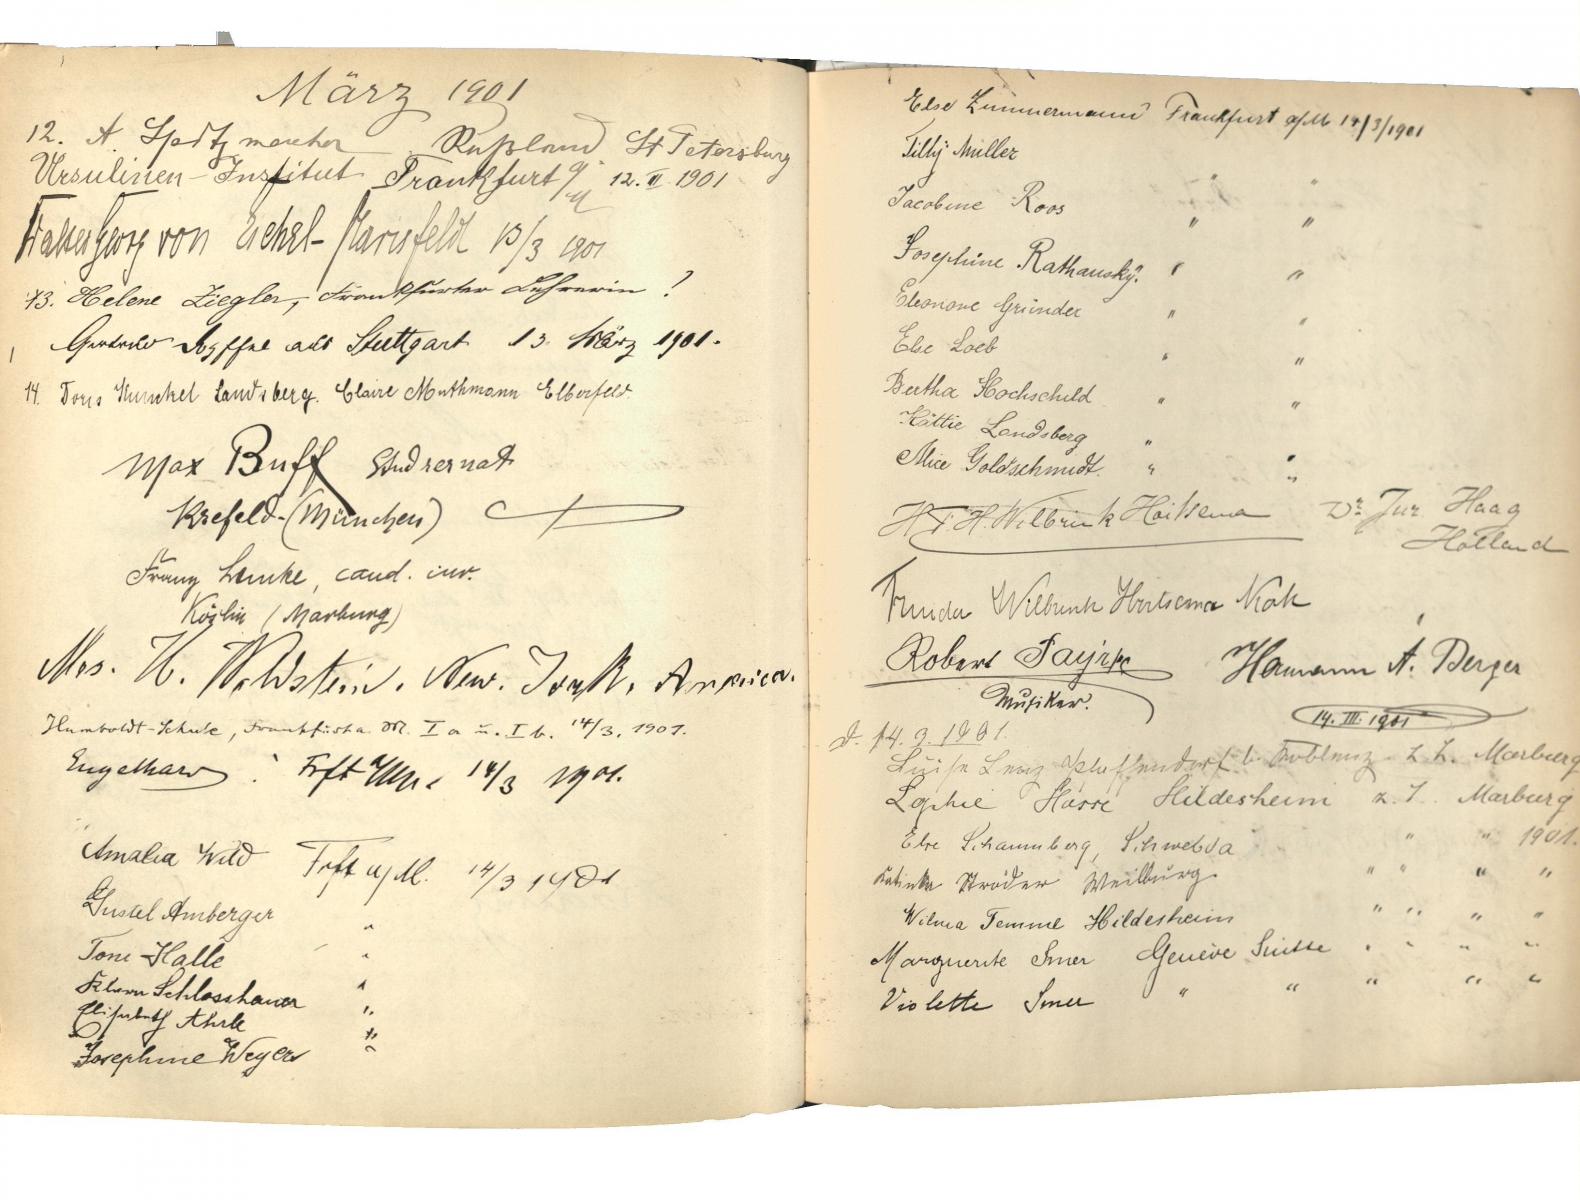 März 1901
12. A. Russland St Petersburg
Ursulinen-Institut Frankfurt a/M 12. III 1901
Walter Georg von Eichel- 13/3 1901
13. Helene Ziegler, Frankfurter Lehrerin ?
Gertrud aus Stuttgart 13. März 1901.
14. Doris Kunkel Landsberg. Claire Muthmann Elberfeld.
Max Buff
Krefeld-(München)
Franz Lemke, cand. iur.
Köslin (Marburg)
Mrs. H. Waldstein. New. York. America.
Humboldt-Schule, Frankfurt a. M. I a u. I b. 14/3. 1901.
Engelhard Frft 14/3 1901.
Amalia Wild Frft a/M. 14/3 1901
Gustel Amberger "
Toni Halle "
Klara Schlosshauer "
Elisabeth Ahrle "
Josephine Weyer "
Else Zimmermann Frankfurt a/M 14/3/1901
Tilly Müller " "
Jacobine Roos " "
Josephine Rathausky. " "
Eleonore Gründer " "
Else Loeb " "
Bertha Hochschild " "
Kättie Landsberg "
Alice Goldschmidt. " "
H. Wilbrink Hoitsema Dr Jur Haag
Holland
Wilbrink Hoitsema
Robert Hermann A. Berger
Musiker.
14. III. 1901
d. 14. 3. 1901.
Luise Lenz Pfaffendorf b. Koblenz z. Z. Marburg
Sophie Hildesheim z. Z. Marburg
Else Schaumberg, Schwebda " " 1901.
Katinka Ströder Weilburg. " " " "
Wilma Temme Hildesheim " " " "
Marguerite Genève Suisse " " " "
Violette " " " " "